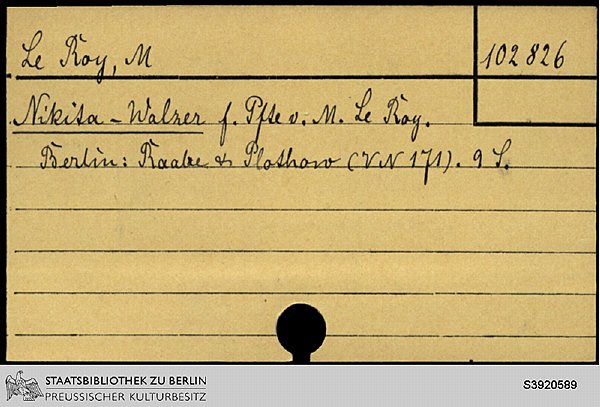 Le Roy, M
102826
Nikita-Walzer f. Pfte v. M. Le Roy.
Berlin: Raabe & Plothow (VN 171). 9 S.
STAATSBIBLIOTHEK ZU BERLIN
PREUSSISCHER KULTURBESITZ
S3920589